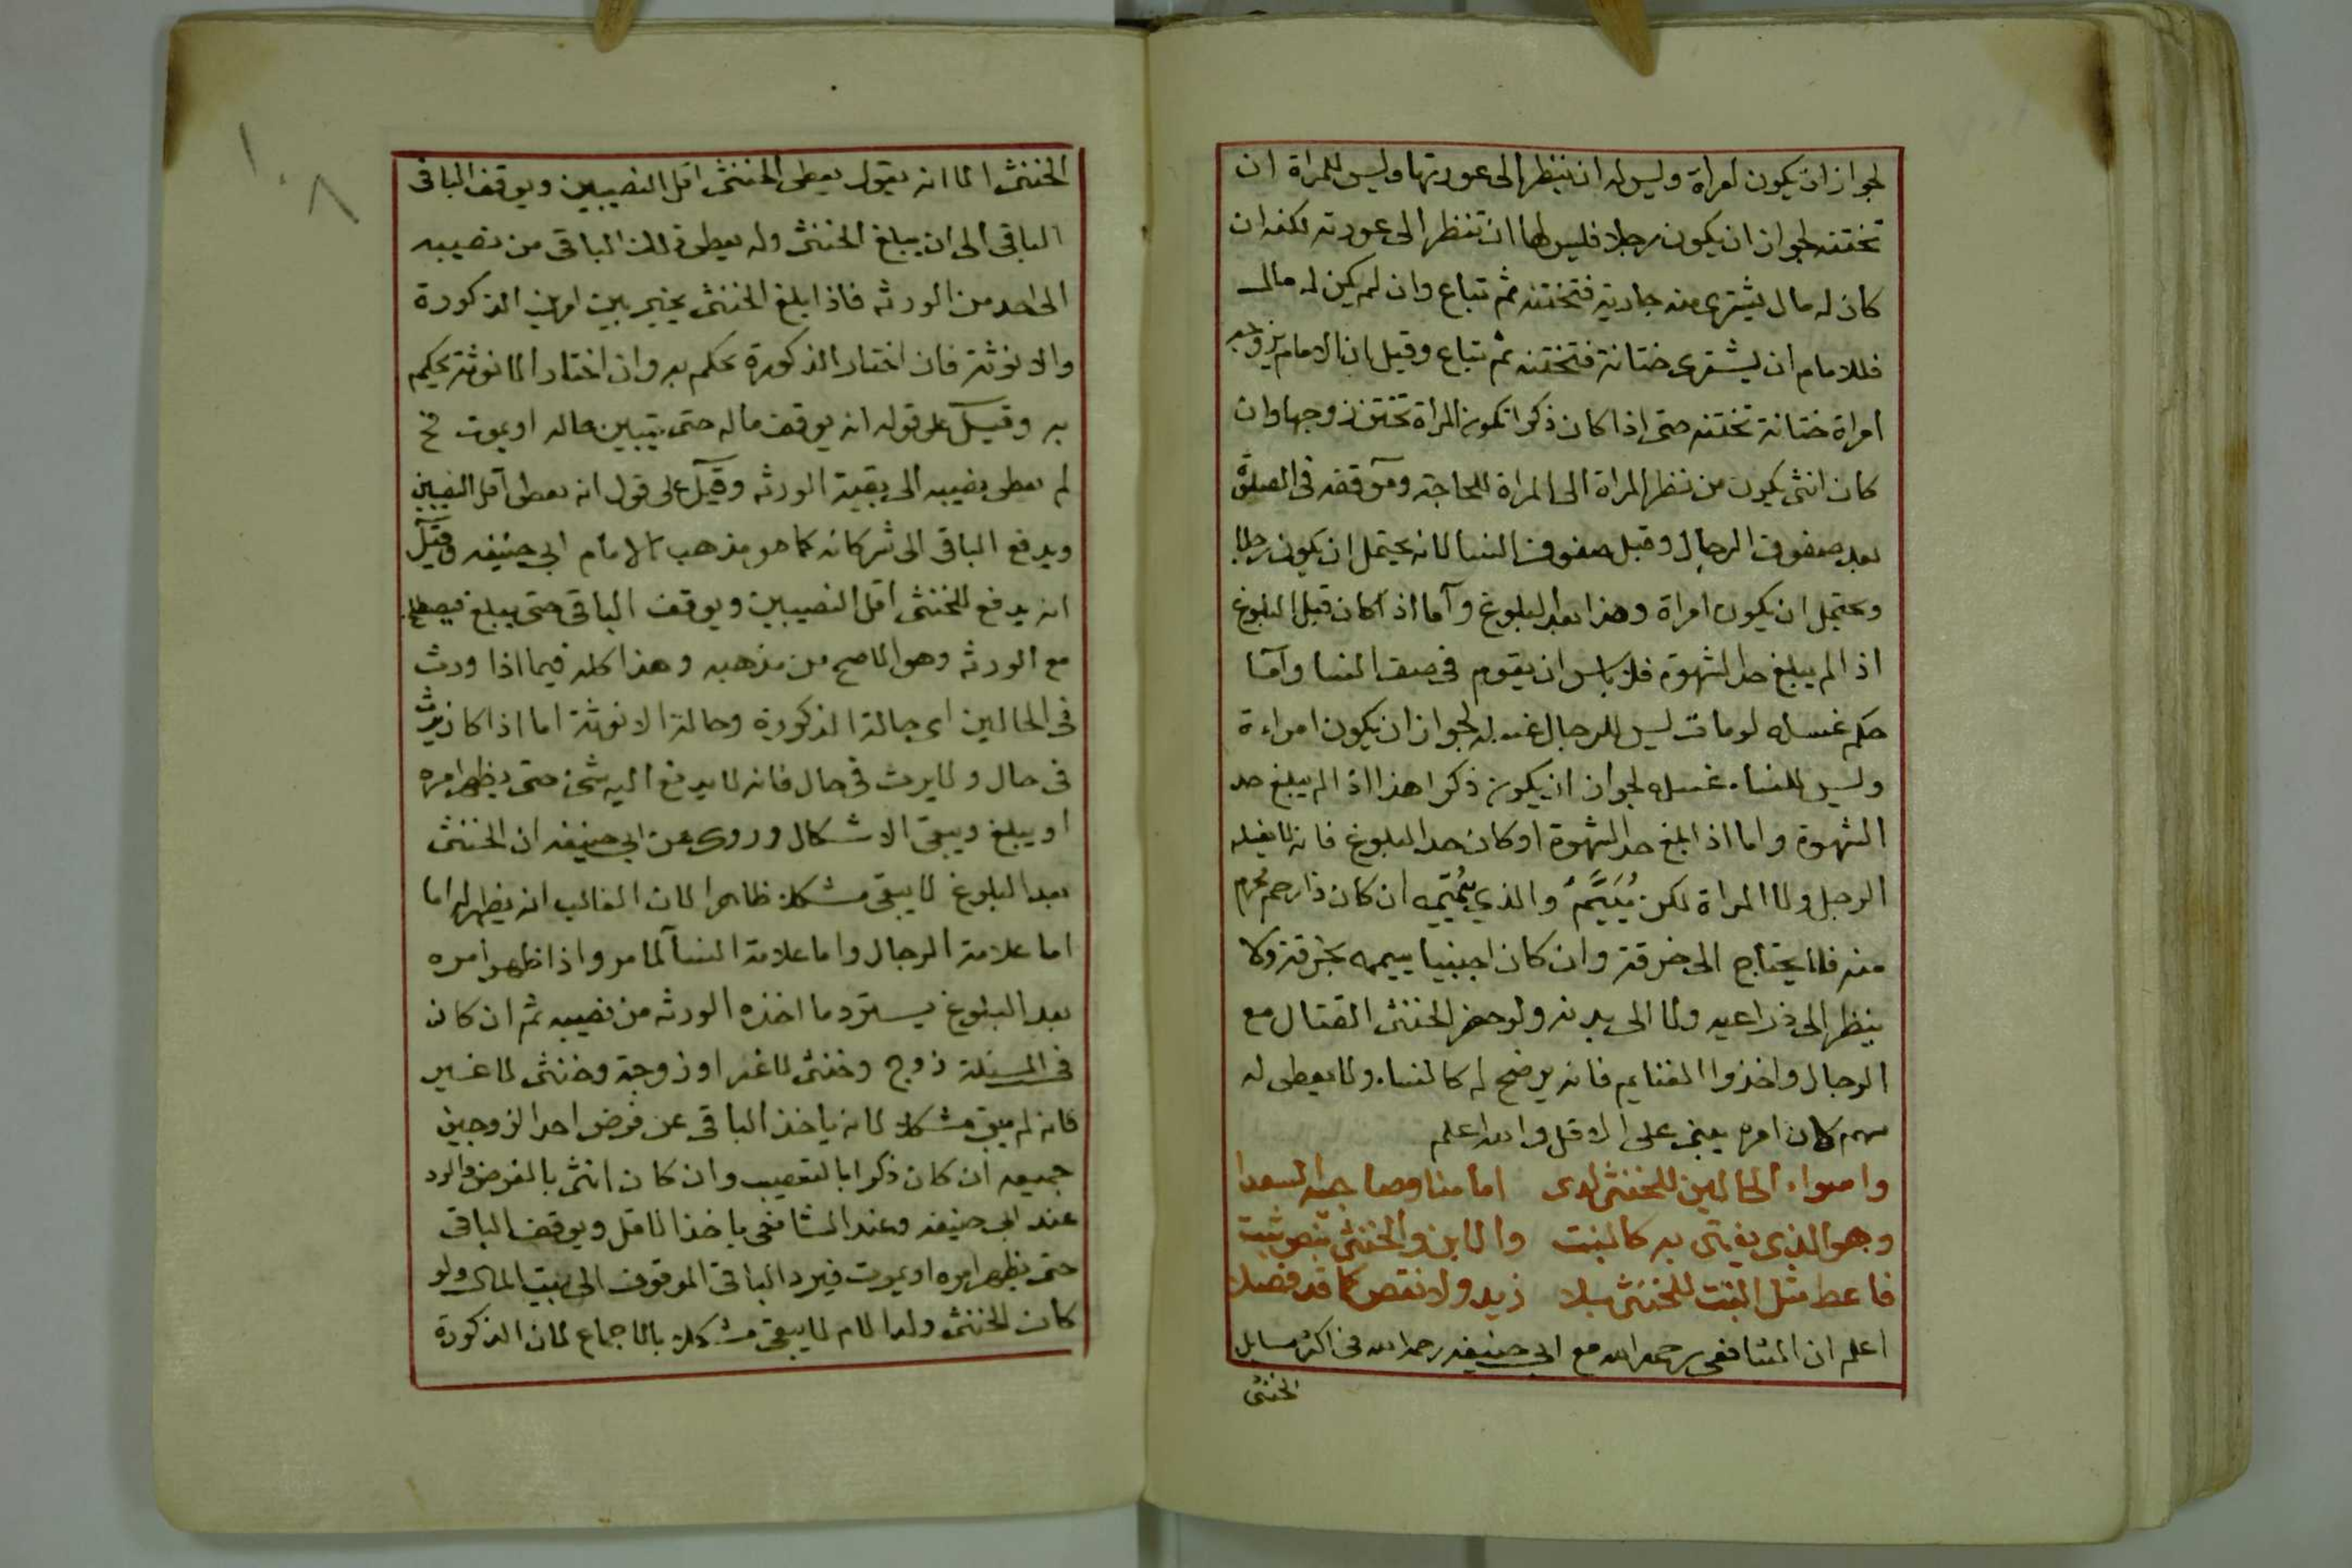 لجواز ان يكون امراة وليس له ان ينظر الى عورتها وليس للمراة ان
تختنه لجواز ان يكون رجلا فليس لها ان تنظر الى عورته لكنه ان
كان له مال يشترى منه جارية فتختنه ثم تباع وان لم يكن له مال
فللامام ان يشترى ختانة فتختنه ثم تباع وقيل ان الامام يزوجه
امراة ختانة تختنه حتى اذا كان ذكرا تكون المراة تختن زوجها وان
كان انثى يكون من نظر المراة الى المراة للحاجة وموقفه فى الصلوة
بعد صفوف الرجال وقبل صفوف النسا لانه يحتمل ان يكون رجلا
ويحتمل ان يكون امراة وهذا بعد البلوغ وآما اذا كان قبل البلوغ
اذا لم يبلغ حد الشهوة فلا باس ان يقوم فى صف النسا وآما
حكم غسله لو مات ليس للرجال غسله لجواز ان يكون امراءة
وليس للنساء غسله لجواز ان يكون ذكرا هذا اذا لم يبلغ حد
الشهوة واما اذا بلغ حد الشهوة او كان حد البلوغ فانه لا يغسله
الرجل ولا المراة لكن يُيَمَّمُ والذي يُيَمِّمه ان كان ذا رحم محرم
منه فلا يحتاج الى خرقة وان كان اجنبيا ييممه بخرقة ولا
ينظر الى ذراعيه ولا الى بدنه ولو حضر الخنثى القتال مع
الرجال واخذوا الغنايم فانه يرضخ له كالنساء ولا يعطى له
سهم كان امره يبنى على الاقل والله اعلم
واسواء الحالين للخنثى لدى امامنا وصاحبيه السعدا
وهو الذى يفتى به كالبنت والابن والخنثى بنص ثبت
فاعط مثل البنت للخنثى بلا زيد ولا نقص كما قد فصلا
اعلم ان الشافعى رحمه الله مع ابى حنيفه رحمه الله فى اكثر مسايل
الخنثى
١٠٨
الخنثى الا انه يقول يعطى الخنثى اقل النصيبين ويوقف الباقى
الباقى الى ان يبلغ الخنثى وله يعطى ذلك الباقى من نصيبه
الى احد من الورثه فاذا بلغ الخنثى يخير بين امرين الذكورة
والانوثة فان اختار الذكورة يحكم به وان اختار الانوثة يحكم
به وقيل على قوله انه يوقف ماله حتى يتبين حاله او يموت فح
لم يعطى نصيبه الى بقية الورثه وقيل على قول انه يعطى اقل النصيبين
ويدفع الباقى الى شركائه كما هو مذهب الامام ابى حنيفه وقيل
انه يدفع للخنثى اقل النصيبين ويوقف الباقى حتى يبلغ فيصطلح
مع الورثه وهو الاصح من مذهبه وهذا كله فيما اذا ورث
فى الحالين اى حالة الذكورة وحالة الانوثة اما اذا كان يرث
فى حال ولا يرث فى حال فانه لا يدفع اليه شئ حتى يظهر امره
او يبلغ ويبقى الاشكال وروى عن ابى حنيفه ان الخنثى
بعد البلوغ لا يبقى مشكلا ظاهرا لان الغالب انه يظهر له اما
اما علامة الرجال واما علامة النسآ لما مر واذا ظهر امره
بعد البلوغ يسترد ما اخذه الورثه من نصيبه ثم ان كان
فى المسئلة زوج وخنثى لا غير او زوجة وخنثى لا غير
فانه لم يبق مشكلا لانه ياخذ الباقى عن فرض احد الزوجين
جميعه ان كان ذكرا بالتعصيب وان كان انثى بالفرض والرد
عند ابى حنيفه وعند الشافعى ياخذ الاقل ويوقف الباقى
حتى يظهر امره او يموت فيرد الباقى الموقوف الى بيت المال ولو
كان الخنثى ولد الام لا يبقى مشكلا بالاجماع لان الذكورة